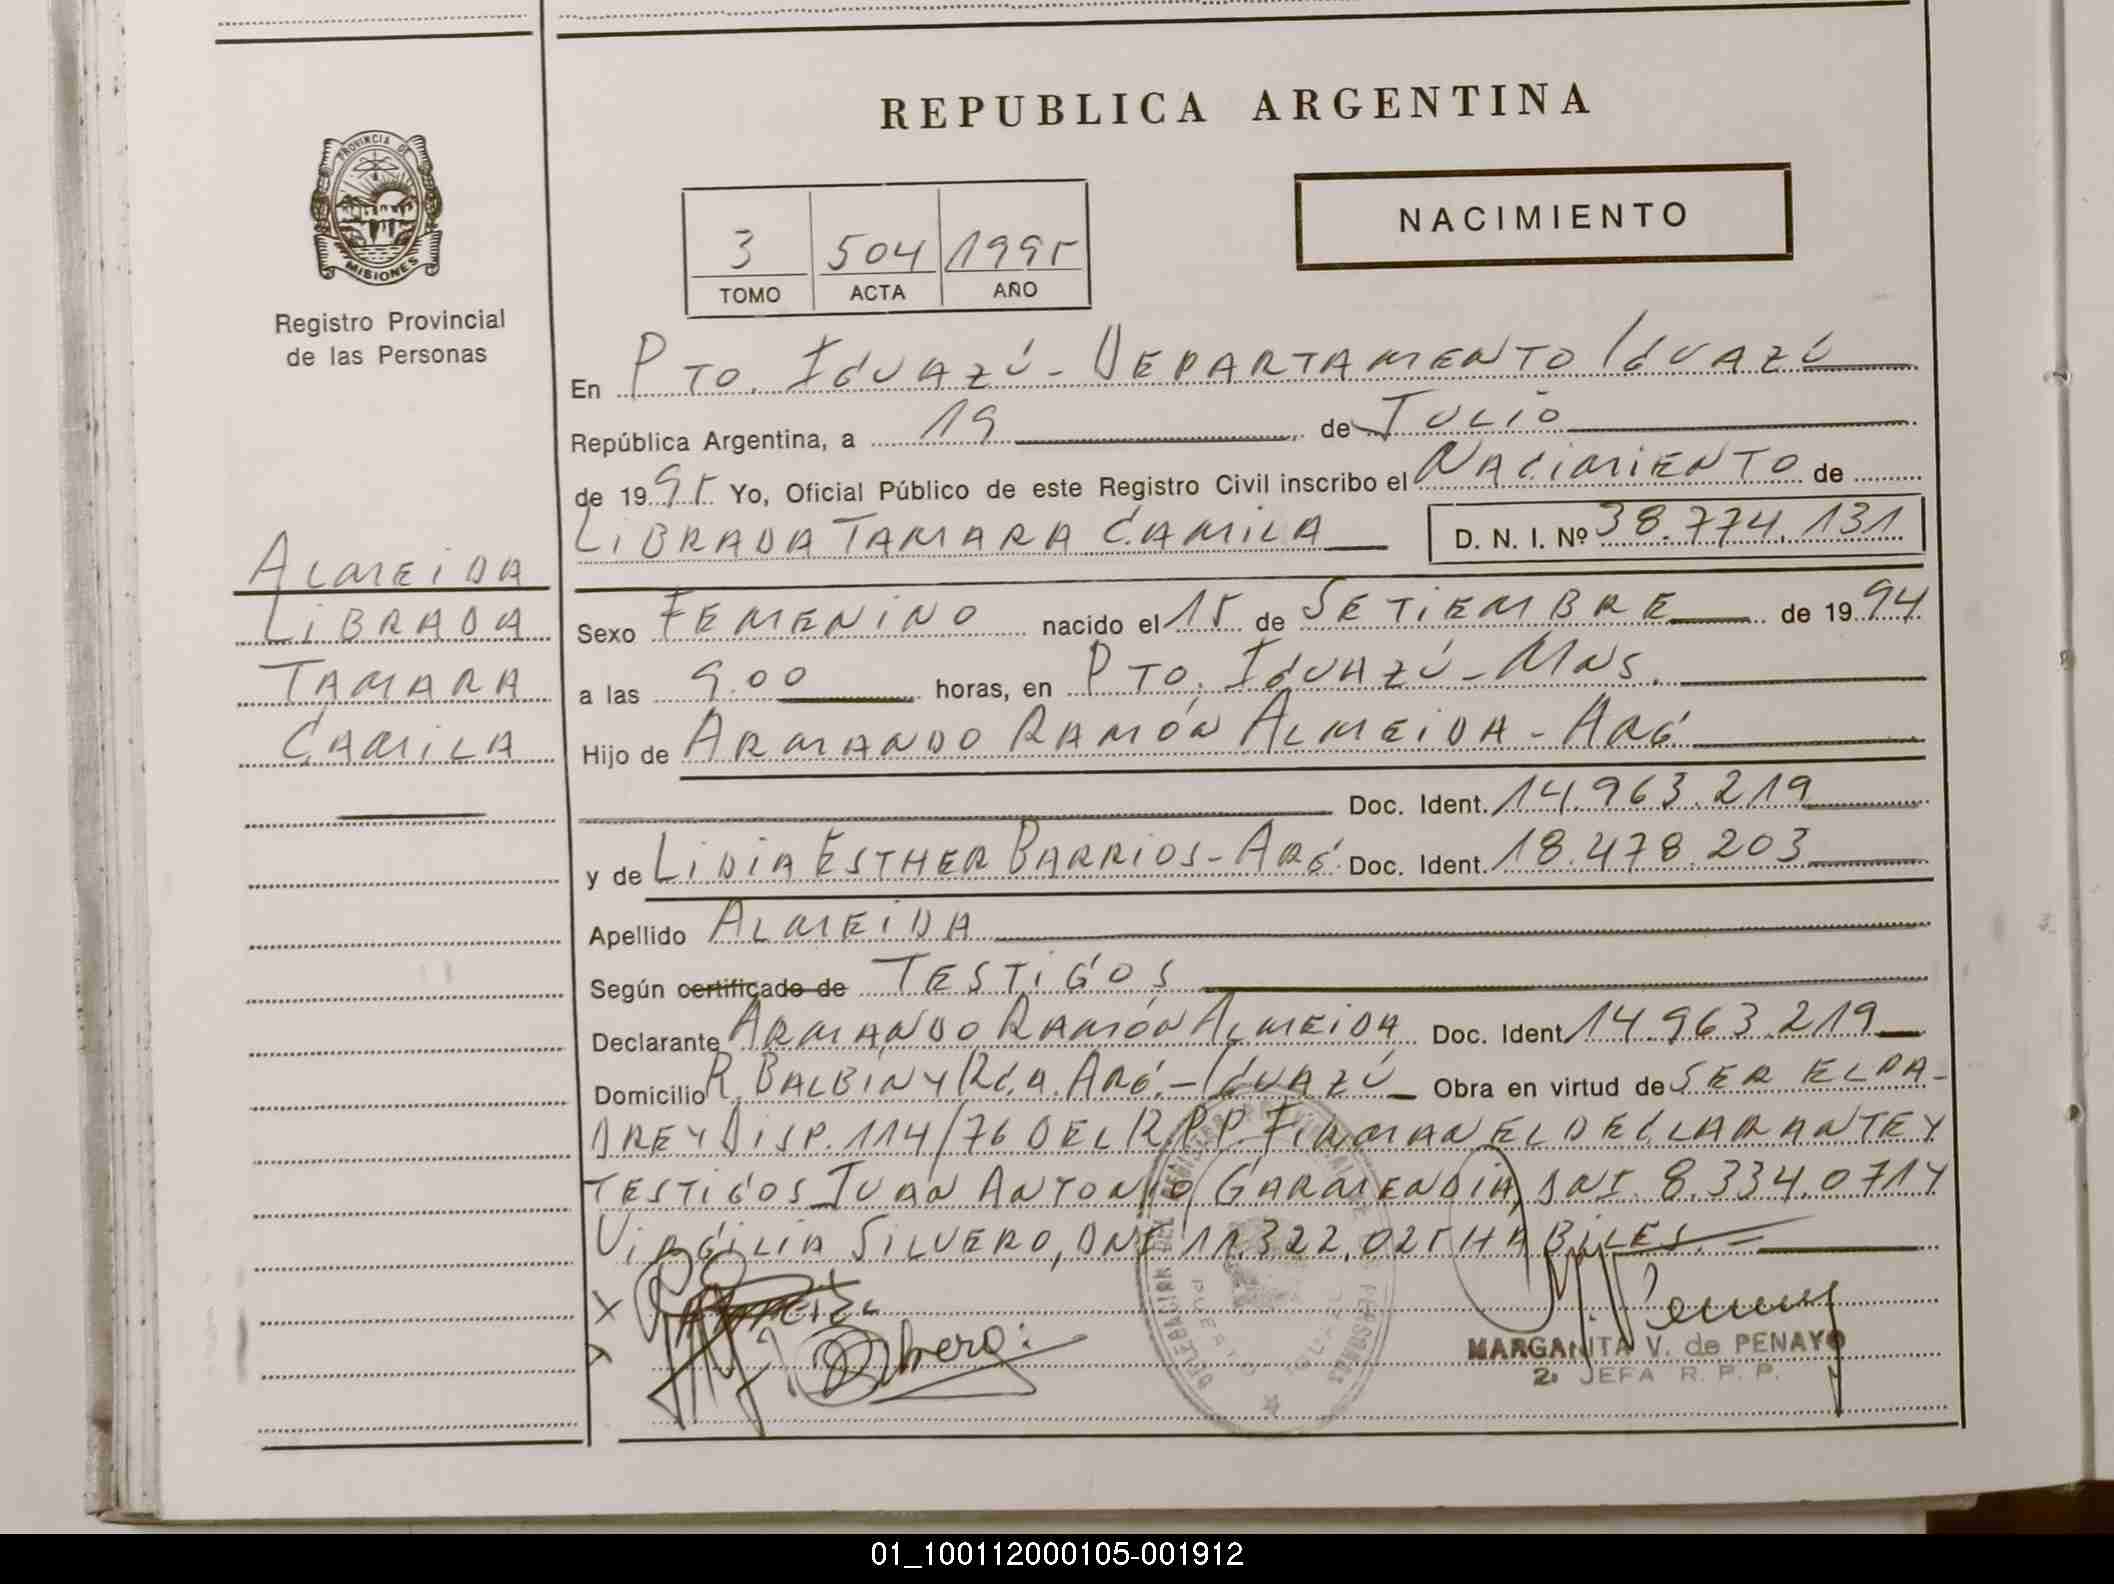 REPUBLICA ARGENTINA
PROVINCIA DE
MISIONES
Registro Provincial
de las Personas
NACIMIENTO
3 504 1995
TOMO ACTA AÑO
En PTO. IGUAZÚ - DEPARTAMENTO IGUAZÚ
República Argentina, a 19 de JULIO
de 1995 Yo, Oficial Público de este Registro Civil inscribo el NACIMIENTO de
LIBRADA TAMARA CAMILA D. N. I. Nº 38.774.131
ALMEIDA
LIBRADA
TAMARA
CAMILA
Sexo FEMENINO nacido el 15 de SETIEMBRE de 1994
a las 9.00 horas, en PTO. IGUAZÚ - MNS.
Hijo de ARMANDO RAMÓN ALMEIDA - ARG.
Doc. Ident. 14.963.219
y de LIDIA ESTHER BARRIOS - ARG. Doc. Ident. 18.478.203
Apellido ALMEIDA
Según certificado de TESTIGOS
Declarante ARMANDO RAMÓN ALMEIDA Doc. Ident 14.963.219
Domicilio R. BALBIN Y RCA. ARG. - IGUAZÚ Obra en virtud de SER EL PA-
DRE Y DISP. 114/76 DEL R.P.P. FIRMAN EL DECLARANTE Y
TESTIGOS JUAN ANTONIO GARMENDIA, DNI. 8.334.071 Y
VIRGILIA SILVERO, DNI 11.322.025 HABILES.
MARGARITA V. de PENAYO
2. JEFA R. P. P.
01_100112000105-001912